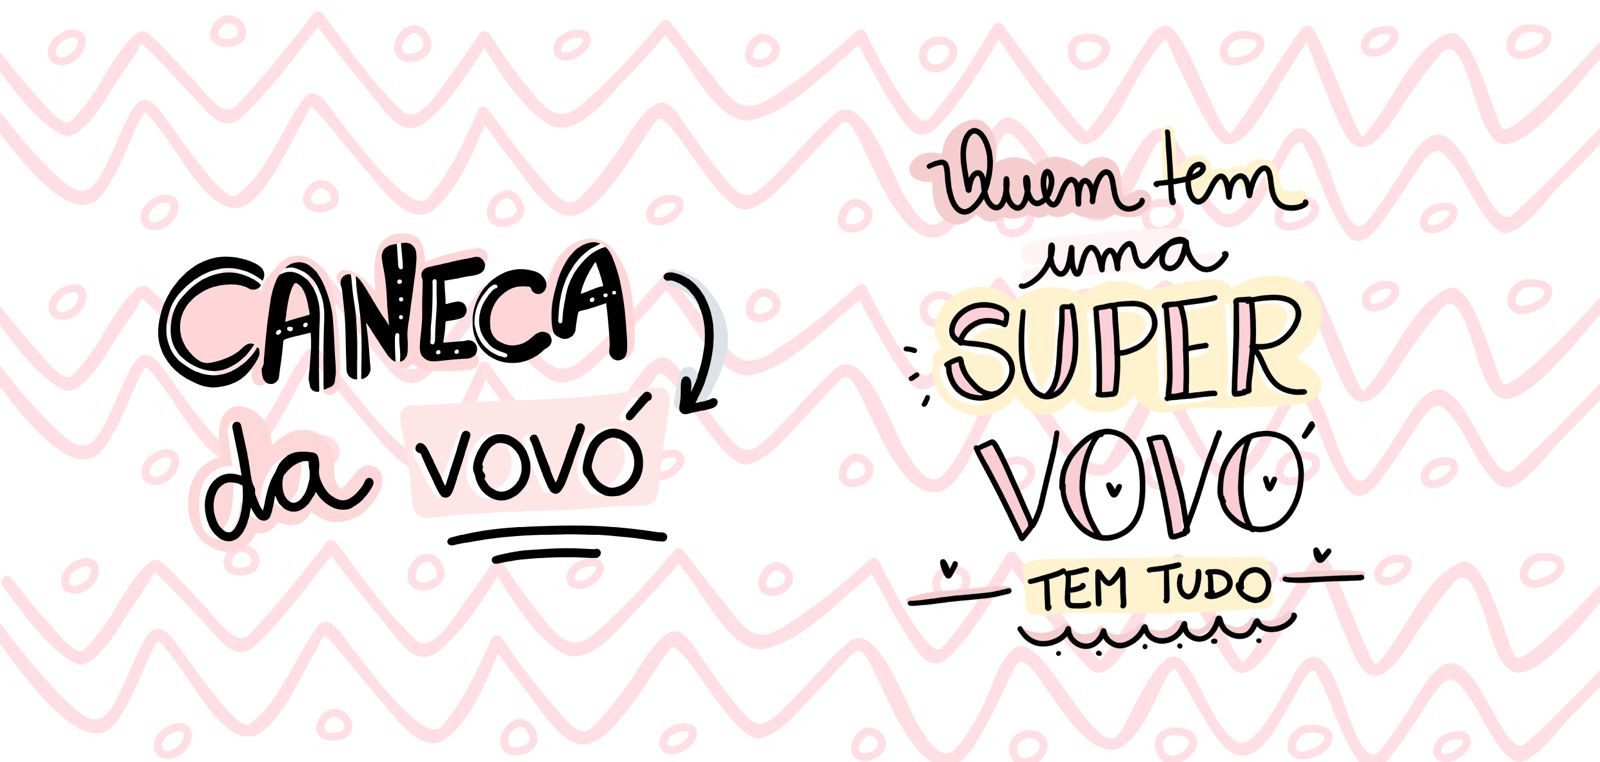 CANECA
da VOVÓ
Quem tem
uma
SUPER
VOVÓ
TEM TUDO